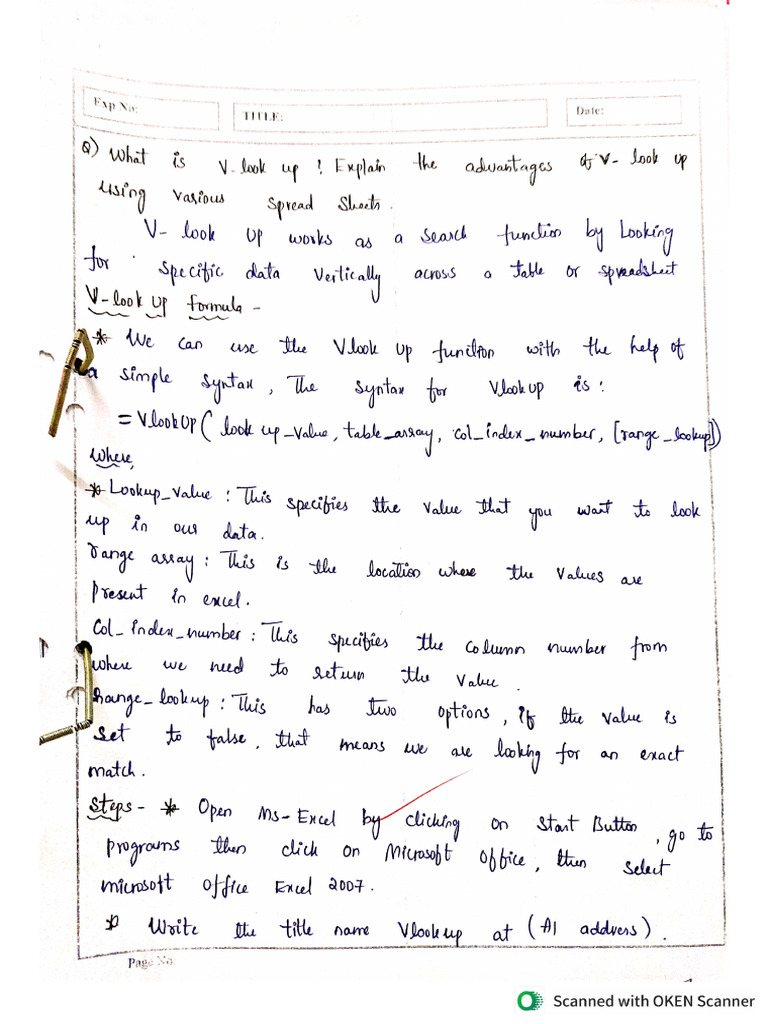 Exp No:
TITLE:
Date:
Q) What is V-look up ? Explain the advantages of V-look up
using various Spread Sheets.
V-look up works as a search function by Looking
for specific data vertically across a table or spreadsheet
V-look up formula -
* We can use the Vlook up function with the help of
a simple syntax, The syntax for Vlookup is:
= VlookUp( look up_value, table_array, col_index_number, [range_lookup])
where,
* Lookup_value : This specifies the value that you want to look
up in our data.
range array : This is the location where the values are
present in excel.
Col_index_number : This specifies the column number from
where we need to return the value.
Range_lookup : This has two options, if the value is
set to false, that means we are looking for an exact
match.
Steps - * Open Ms-Excel by clicking on Start Button, go to
programs then click on Microsoft office, then select
microsoft office Excel 2007.
* Write the title name Vlookup at (A1 address).
Page No:
Scanned with OKEN Scanner